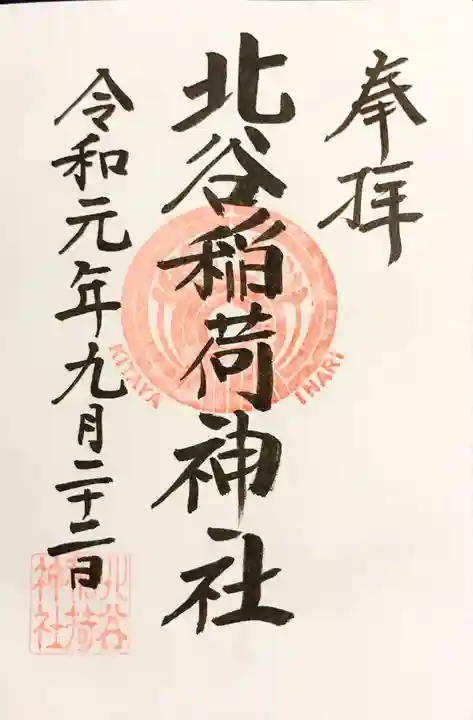 奉拝
北谷稲荷神社
KITAYA
INARI
令和元年九月二十二日
北谷
稲荷
神社